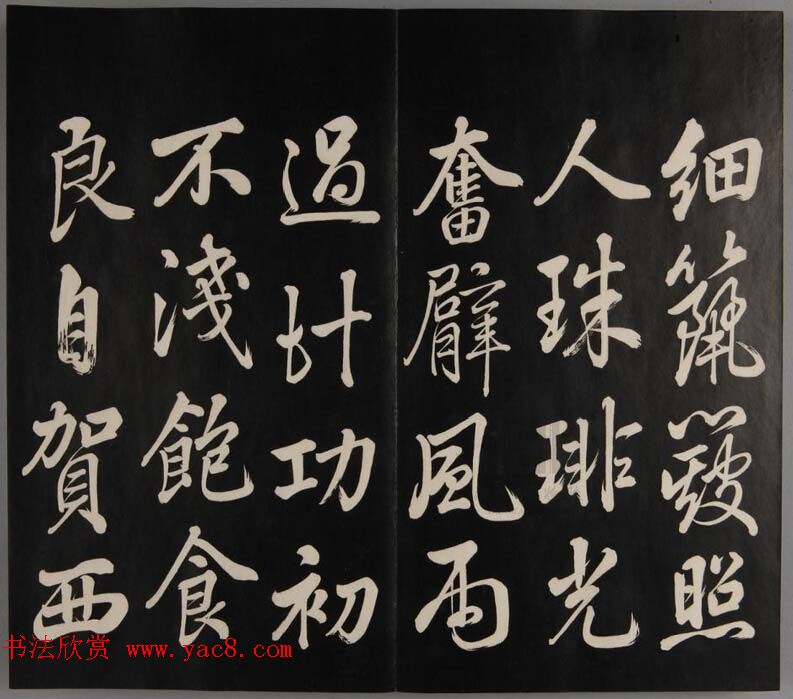 細簸照
人珠琲光
奮臂風雨
過計功初
不淺飽食
良自賀西
书法欣赏 www.yac8.com